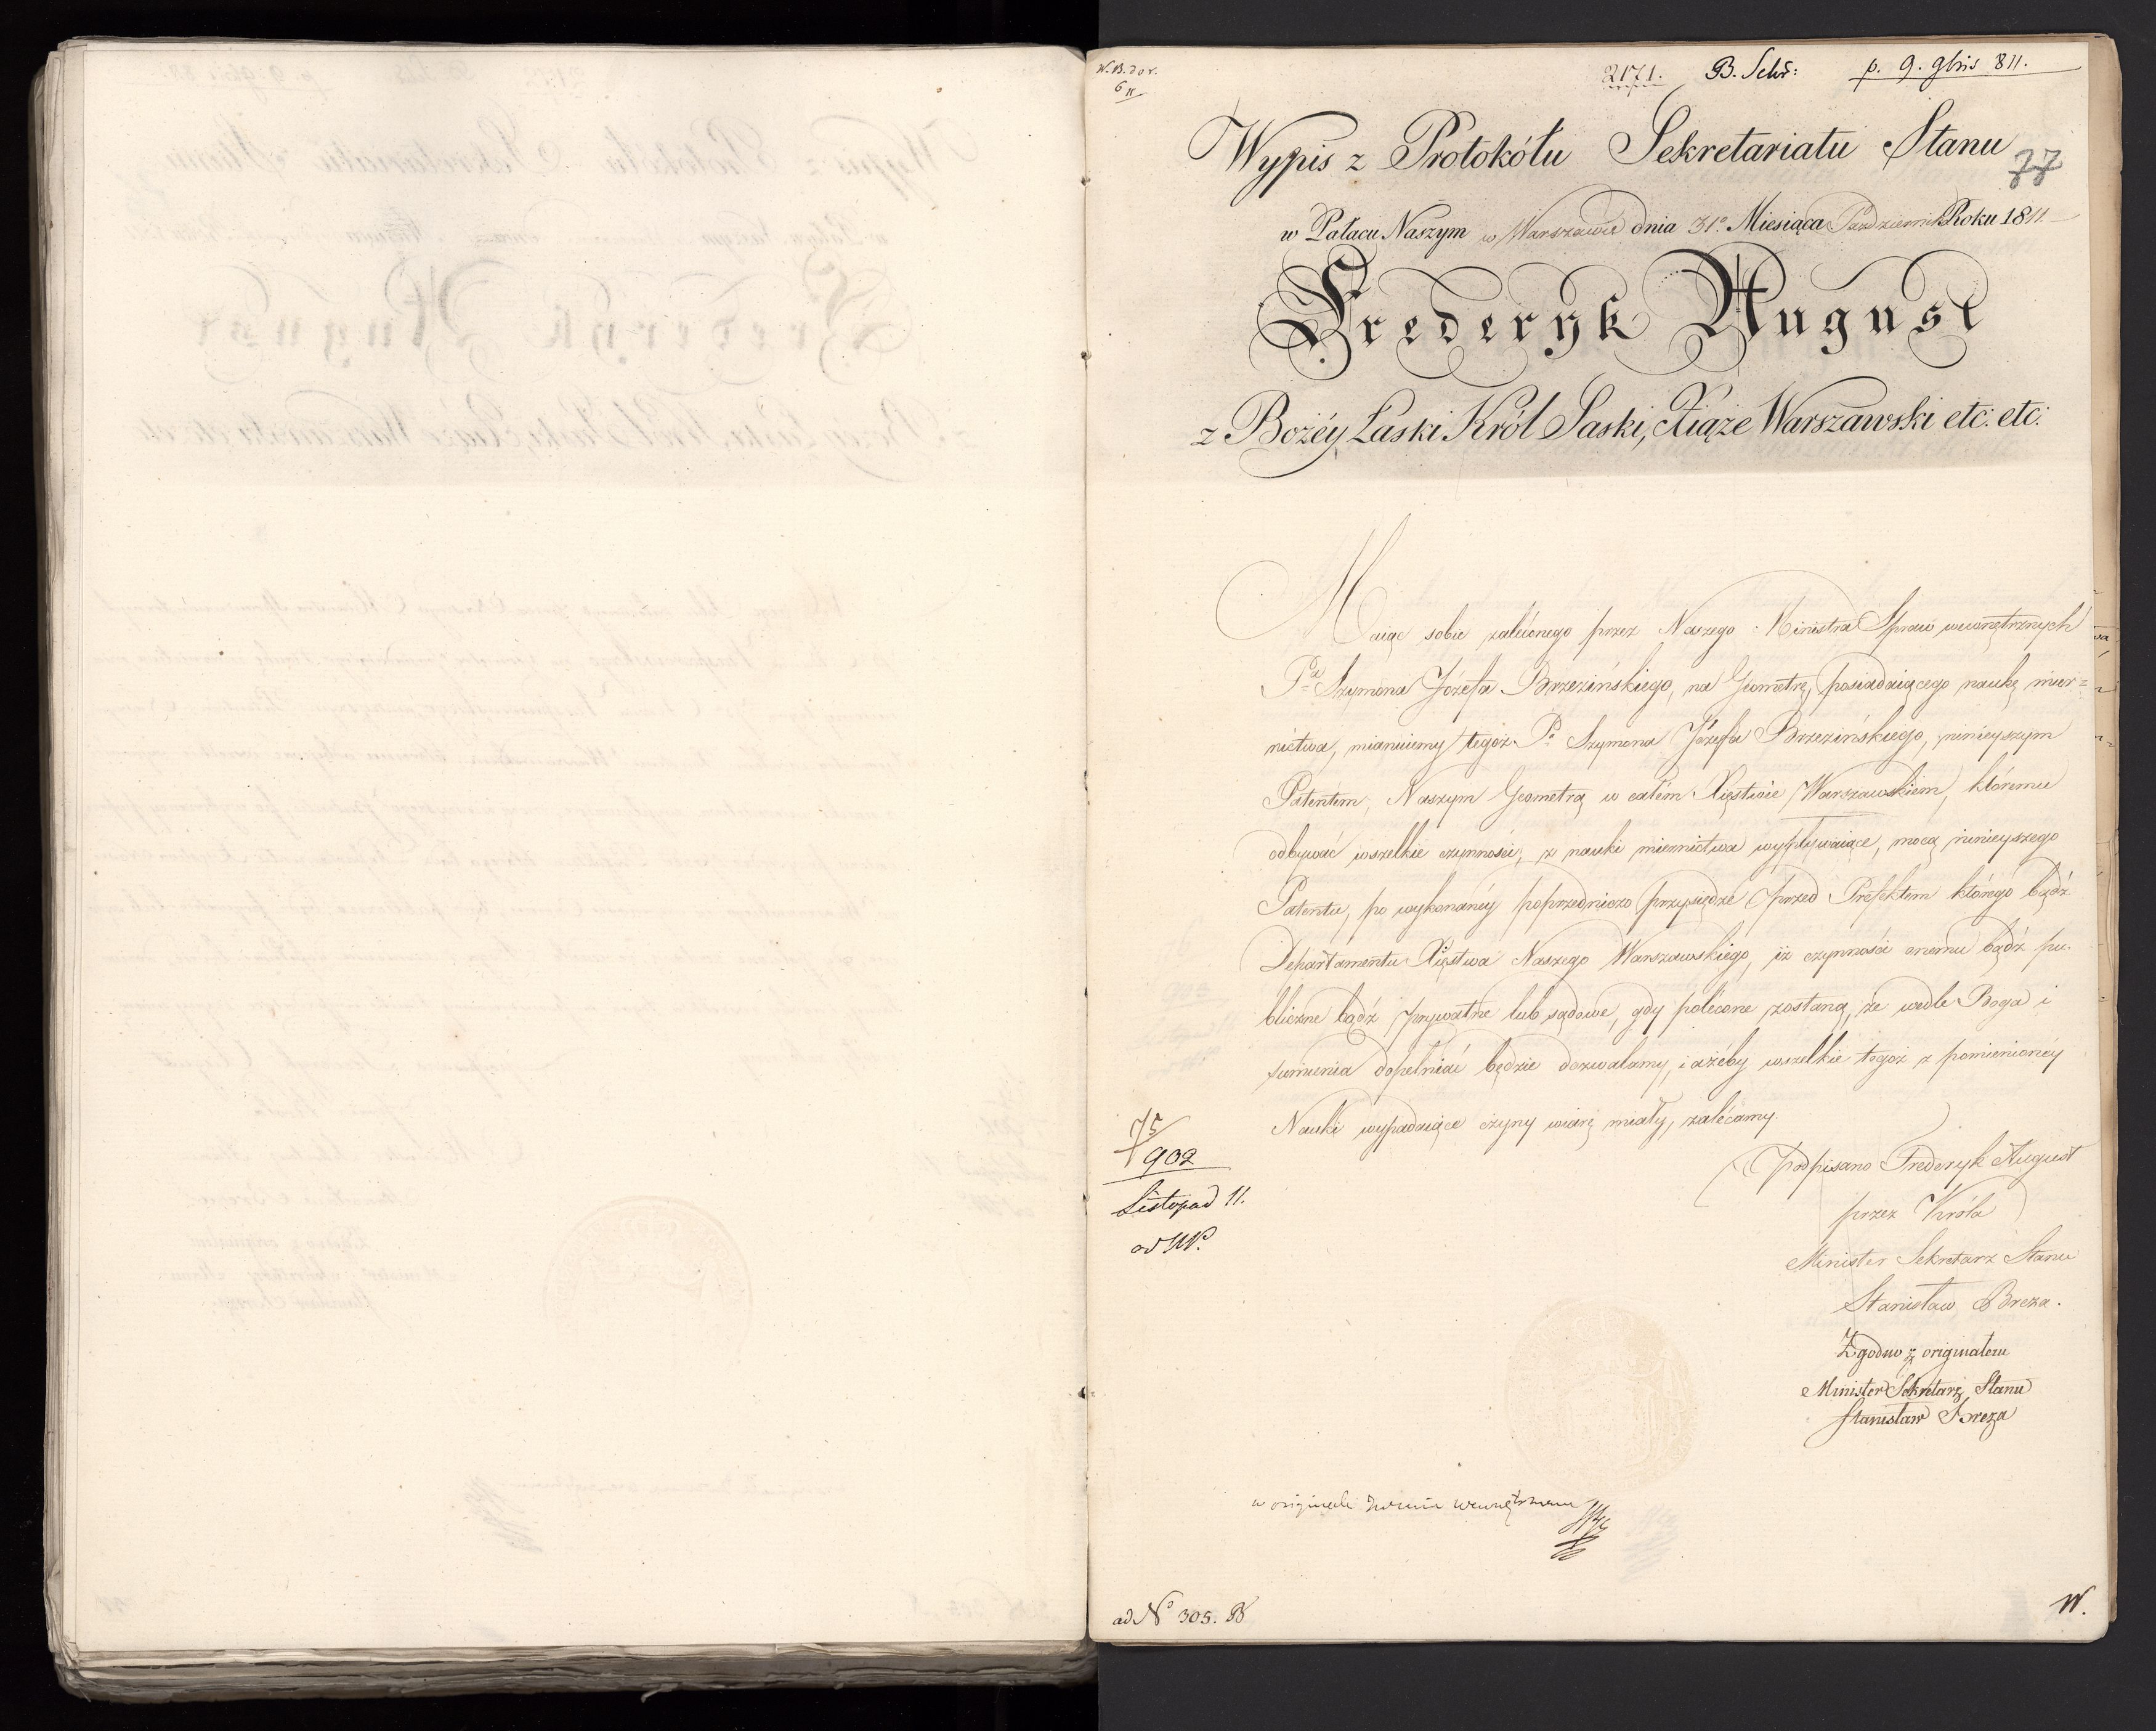 W. B. dor.
6/11
2171. B. Sekr: p. 9. 9bris 811.
Wypis z Protokółu Sekretariatu Stanu
77
w Pałacu Naszym w Warszawie dnia 31º Miesiąca Październik Roku 1811
Frederyk August
z Bożéy Łaski Król Saski, Xiąże Warszawski etc: etc:
Maiąc sobie zaleconego przez Naszego Ministra Spraw wewnętrznych
Pa Szymona Józefa Brzezińskiego, na Geometrę, posiadaiącego naukę mier=
nictwa, mianuiemy tegoż Pa Szymona Józefa Brzezińskiego, ninieyszym
Patentem, Naszym Geometrą w całém Xięstwie Warszawskiem, któremu
odbywać wszelkie czynności, z nauki miernictwa wypływaiące, mocą ninieyszego
Patentu, po wykonanéy poprzedniczo przysiędze przed Prefektem którego bądź
Departamentu Xięstwa Naszego Warszawskiego, iż czynności onemu bądź pu-
bliczne bądź prywatne lub sądowe, gdy polecone zostaną, że wedle Boga i
sumienia dopełniać będzie dozwalamy, i ażéby wszelkie tegoż z pomienionéy
Nauki wypadaiące czyny wiarę miały, zalécamy.
75/902
Listopad 11.
Podpisano Frederyk August
przez Króla
Minister Sekretarz Stanu
Stanisław Breza.
Zgodno z originałem
Minister Sekretarz Stanu
Stanisław Breza
w originale
ad No 305.
W.